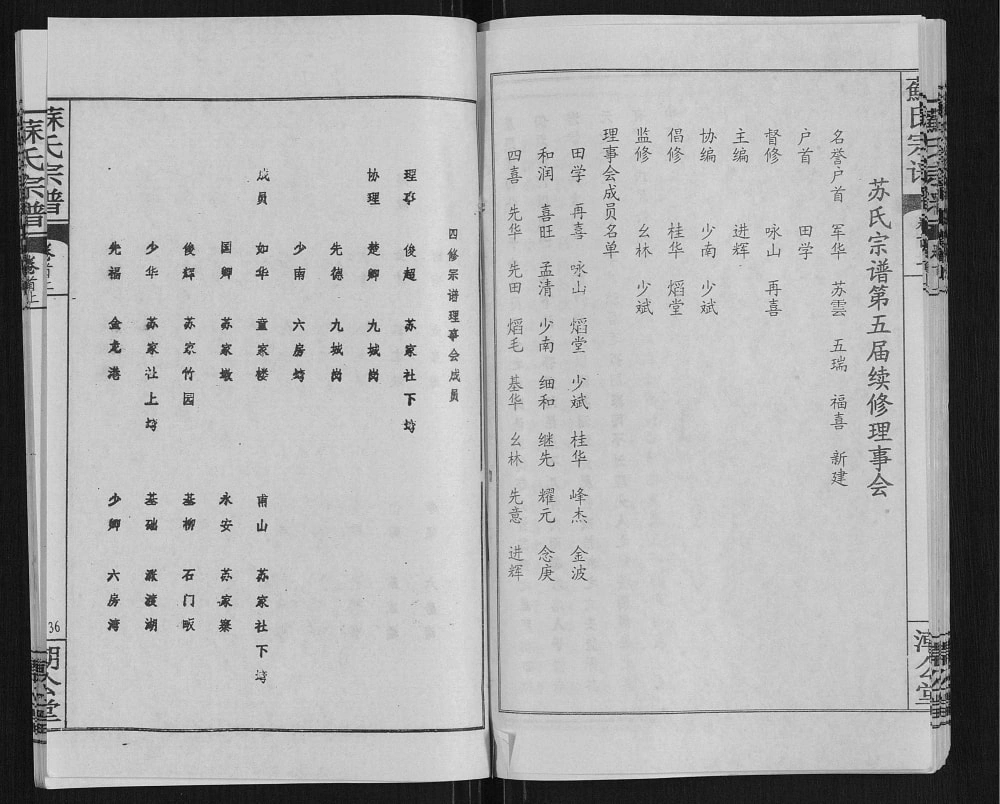 苏氏宗谱第五届续修理事会
名誉户首 军华 苏雲 五瑞 福喜 新建
户首 田学
督修 咏山 再喜
主编 进辉
协编 少南 少斌
倡修 桂华 熖堂
监修 幺林 少斌
理事会成员名单
田学 再喜 咏山 熖堂 少斌 桂华 峰杰 金波
和润 喜旺 孟清 少南 细和 继先 耀元 念庚
四喜 先华 先田 熖毛 基华 幺林 先意 进辉
四修宗谱理事会成员
理事 俊超 苏家社下塆
协理 楚卿 九城岗
先德 九城岗
少南 六房塆
成员 如华 童家楼 甫山 苏家社下塆
国卿 苏家墩 永安 苏家寨
俊辉 苏家竹园 基柳 石门畈
少华 苏家让上塆 基础 渡湖
先福 金龙港 少卿 六房湾
蘇氏宗谱
36